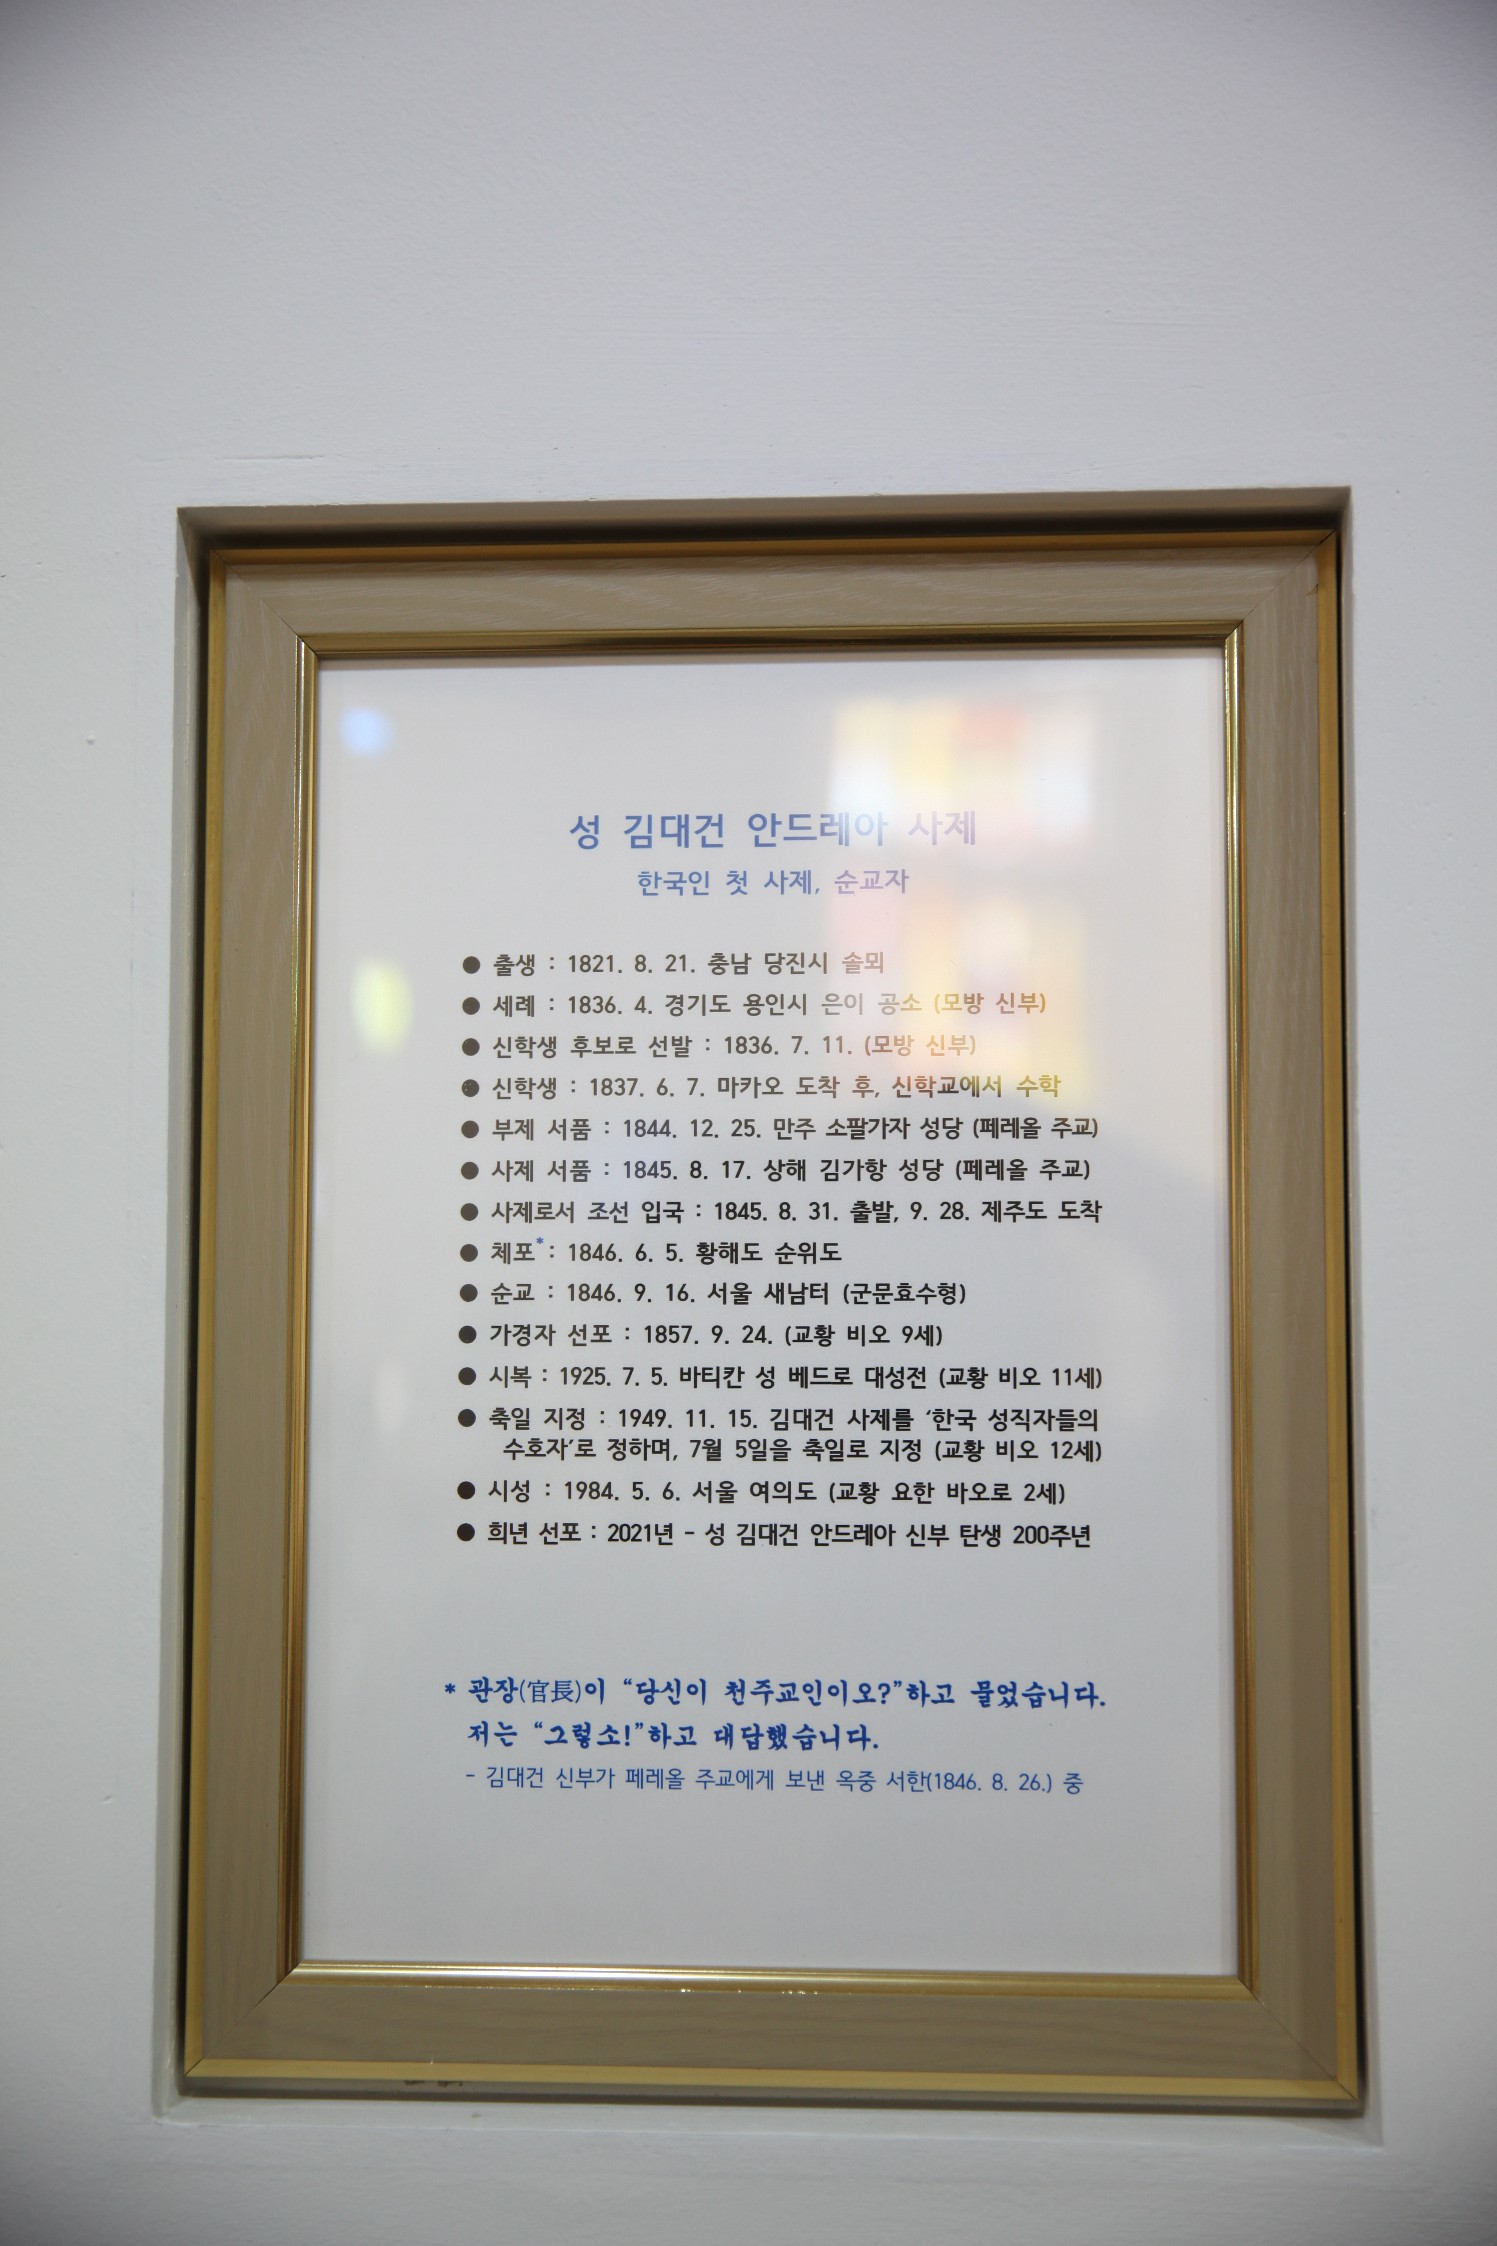 성 김대건 안드레아 사제
한국인 첫 사제, 순교자
● 출생 : 1821. 8. 21. 충남 당진시 솔뫼
● 세례 : 1836. 4. 경기도 용인시 은이 공소 (모방 신부)
● 신학생 후보로 선발 : 1836. 7. 11. (모방 신부)
● 신학생 : 1837. 6. 7. 마카오 도착 후, 신학교에서 수학
● 부제 서품 : 1844. 12. 25. 만주 소팔가자 성당 (페레올 주교)
● 사제 서품 : 1845. 8. 17. 상해 김가항 성당 (페레올 주교)
● 사제로서 조선 입국 : 1845. 8. 31. 출발, 9. 28. 제주도 도착
● 체포* : 1846. 6. 5. 황해도 순위도
● 순교 : 1846. 9. 16. 서울 새남터 (군문효수형)
● 가경자 선포 : 1857. 9. 24. (교황 비오 9세)
● 시복 : 1925. 7. 5. 바티칸 성 베드로 대성전 (교황 비오 11세)
● 축일 지정 : 1949. 11. 15. 김대건 사제를 ‘한국 성직자들의
수호자’로 정하며, 7월 5일을 축일로 지정 (교황 비오 12세)
● 시성 : 1984. 5. 6. 서울 여의도 (교황 요한 바오로 2세)
● 희년 선포 : 2021년 - 성 김대건 안드레아 신부 탄생 200주년
* 관장(官長)이 “당신이 천주교인이오?”하고 물었습니다.
저는 “그렇소!”하고 대답했습니다.
- 김대건 신부가 페레올 주교에게 보낸 옥중 서한(1846. 8. 26.) 중